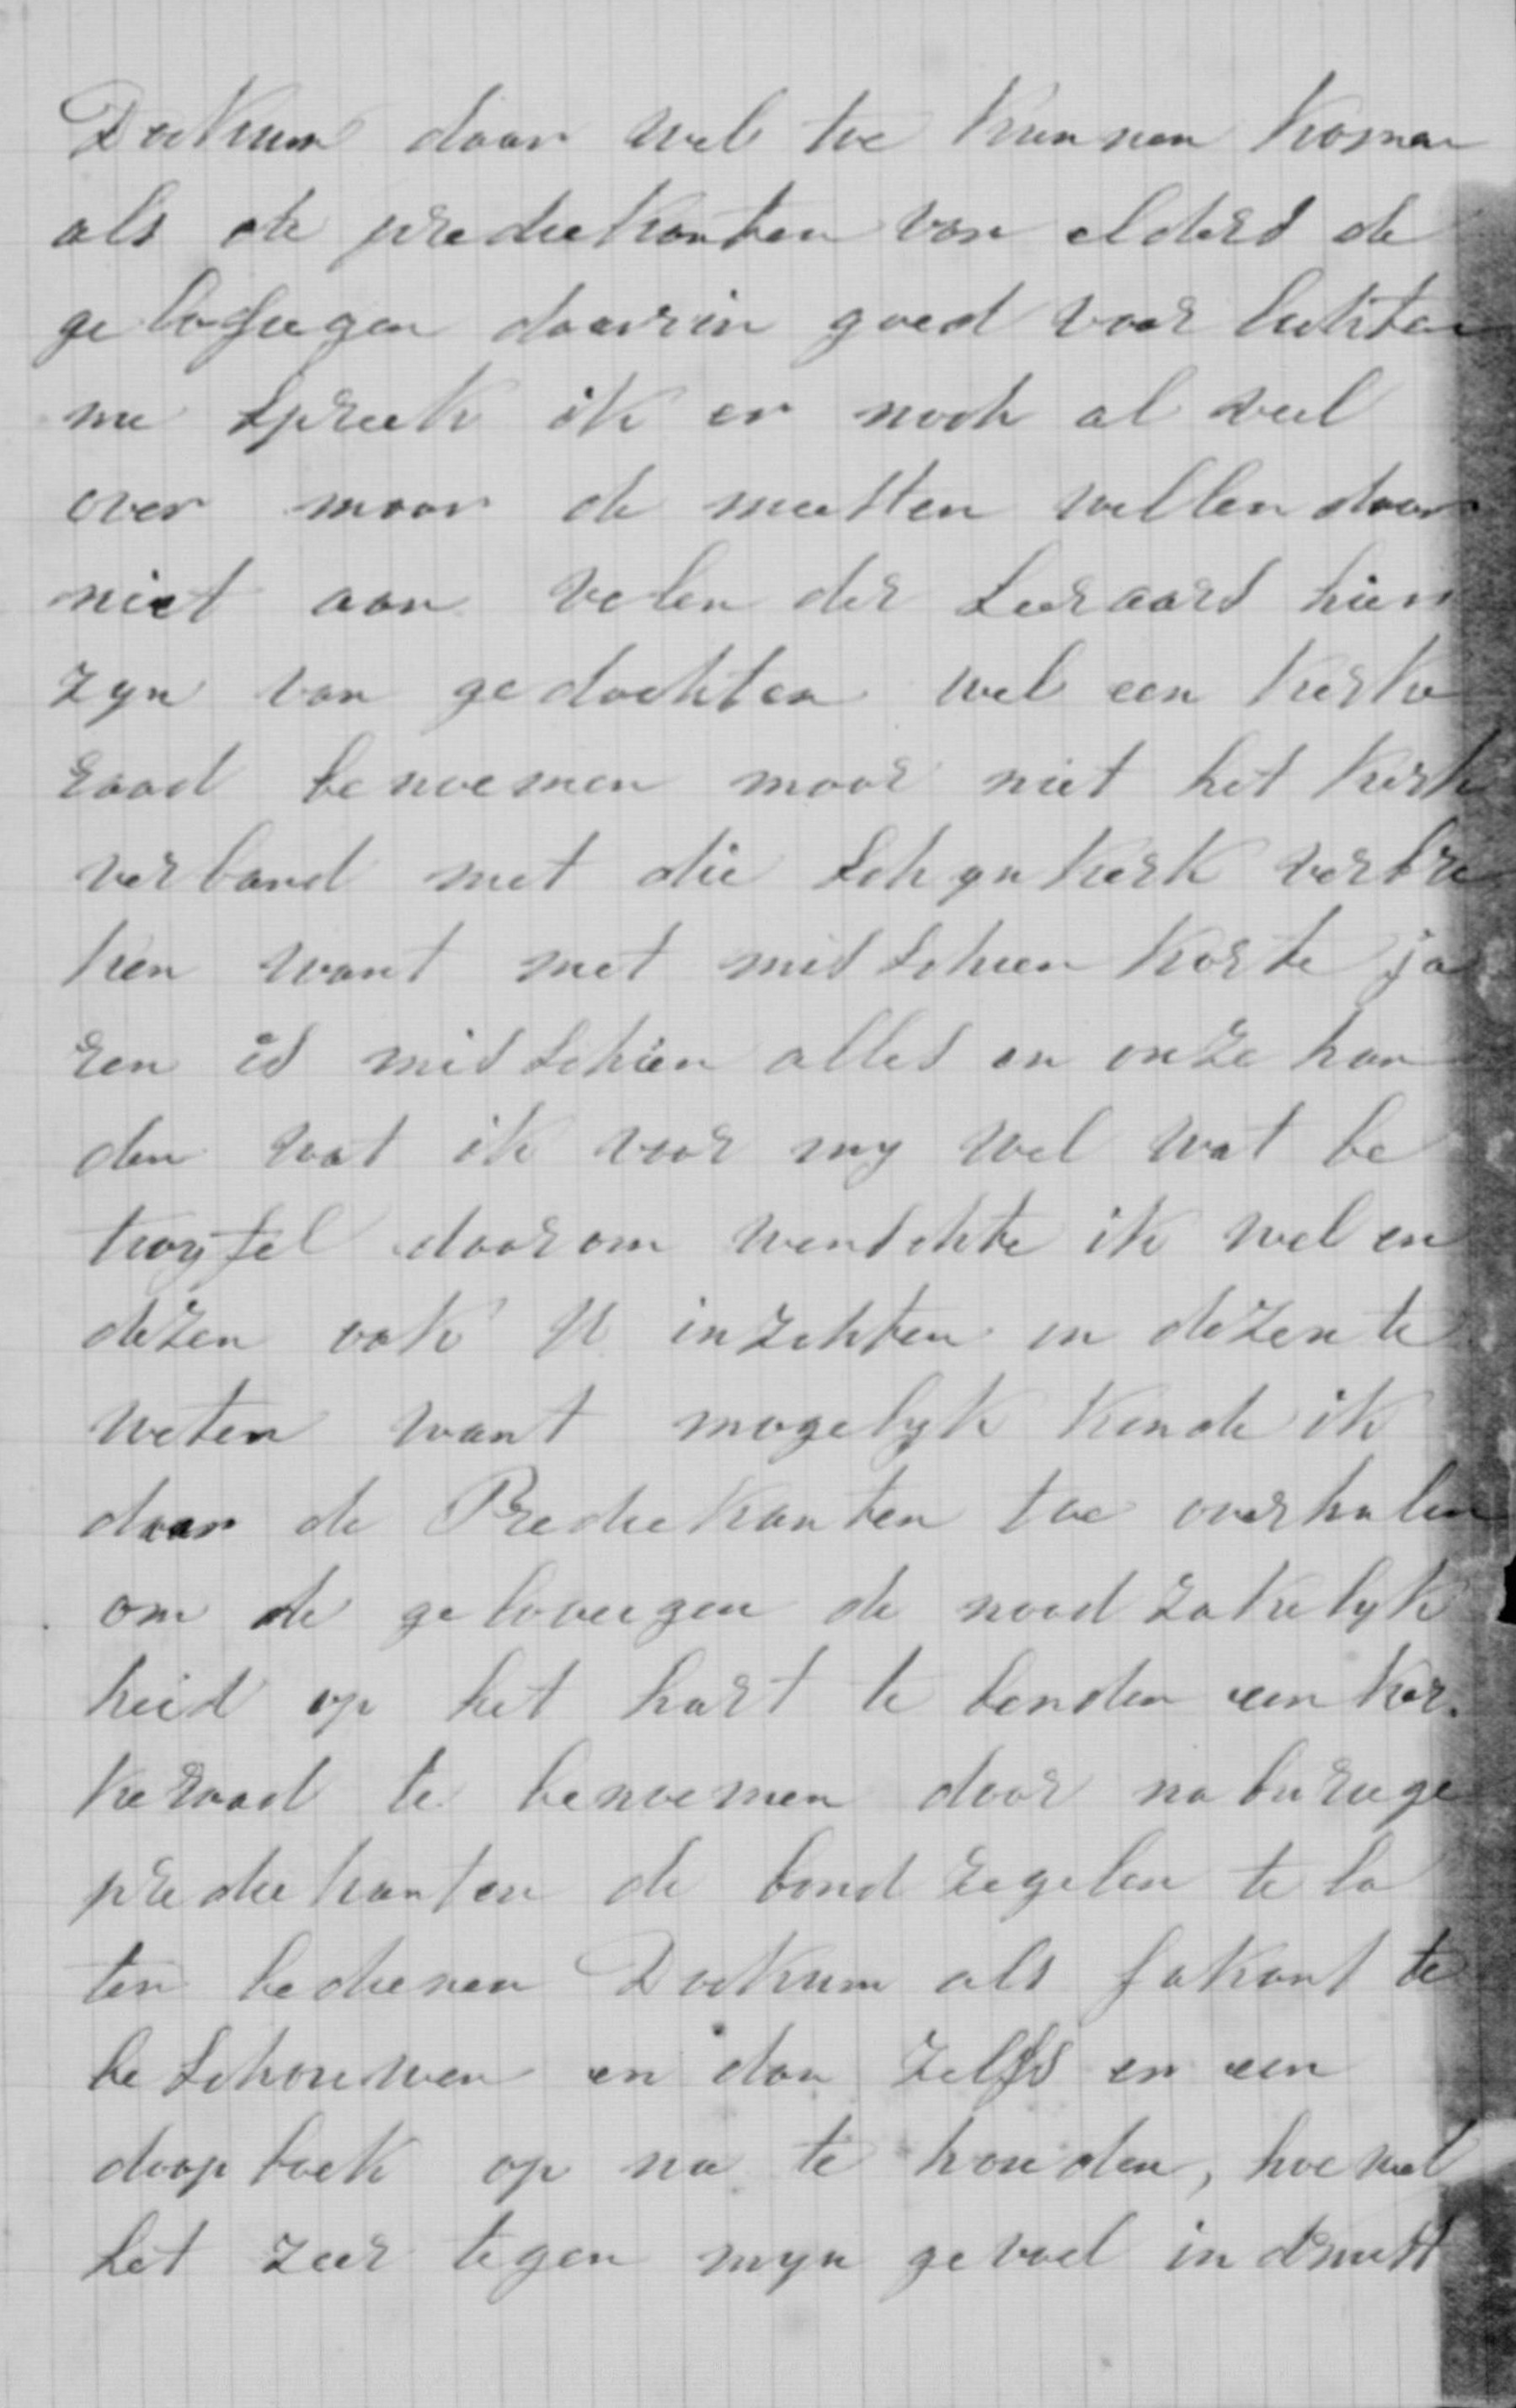 Dockum daar wel toe kunnen komen
als de prediekanten van elders de
geloofiegen daarin goed voor lichten
nu spreek ik er noch al veel
over maar de meesten willen daar
niet aan velen der Leeraars hier
zyn van gedachten wel een kerke
raad benoemen maar niet het kerk
verband met die Schynkerk verbre
ken want met misschien korte ja
ren is misschien alles in onze han
den wat ik voor my wel wat be
twyfel daarom wenschte ik wel in
dezen ook U inzichten in dezen te
weten want mogelyk konde ik
daar de Prediekanten toe overhalen
om de geloviegen de noodzakelyk
heid op het hart te binden een ker
keraad te benoemen door naburiege
prediekanten de bondzegelen te la
ten bedienen Dockum als fakant te
beschouwen en dan zelfs er een
doopboek op na te houden, hoewel
het zeer tegen myn gevoel in